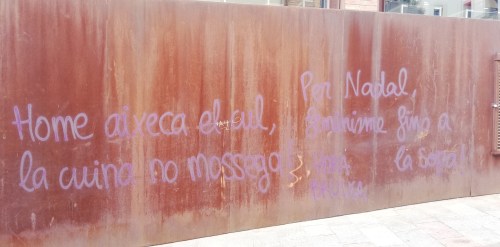 Home aixeca el cul,
la cuina no mossega!
Per Nadal,
feminisme fins a
la Sopa!